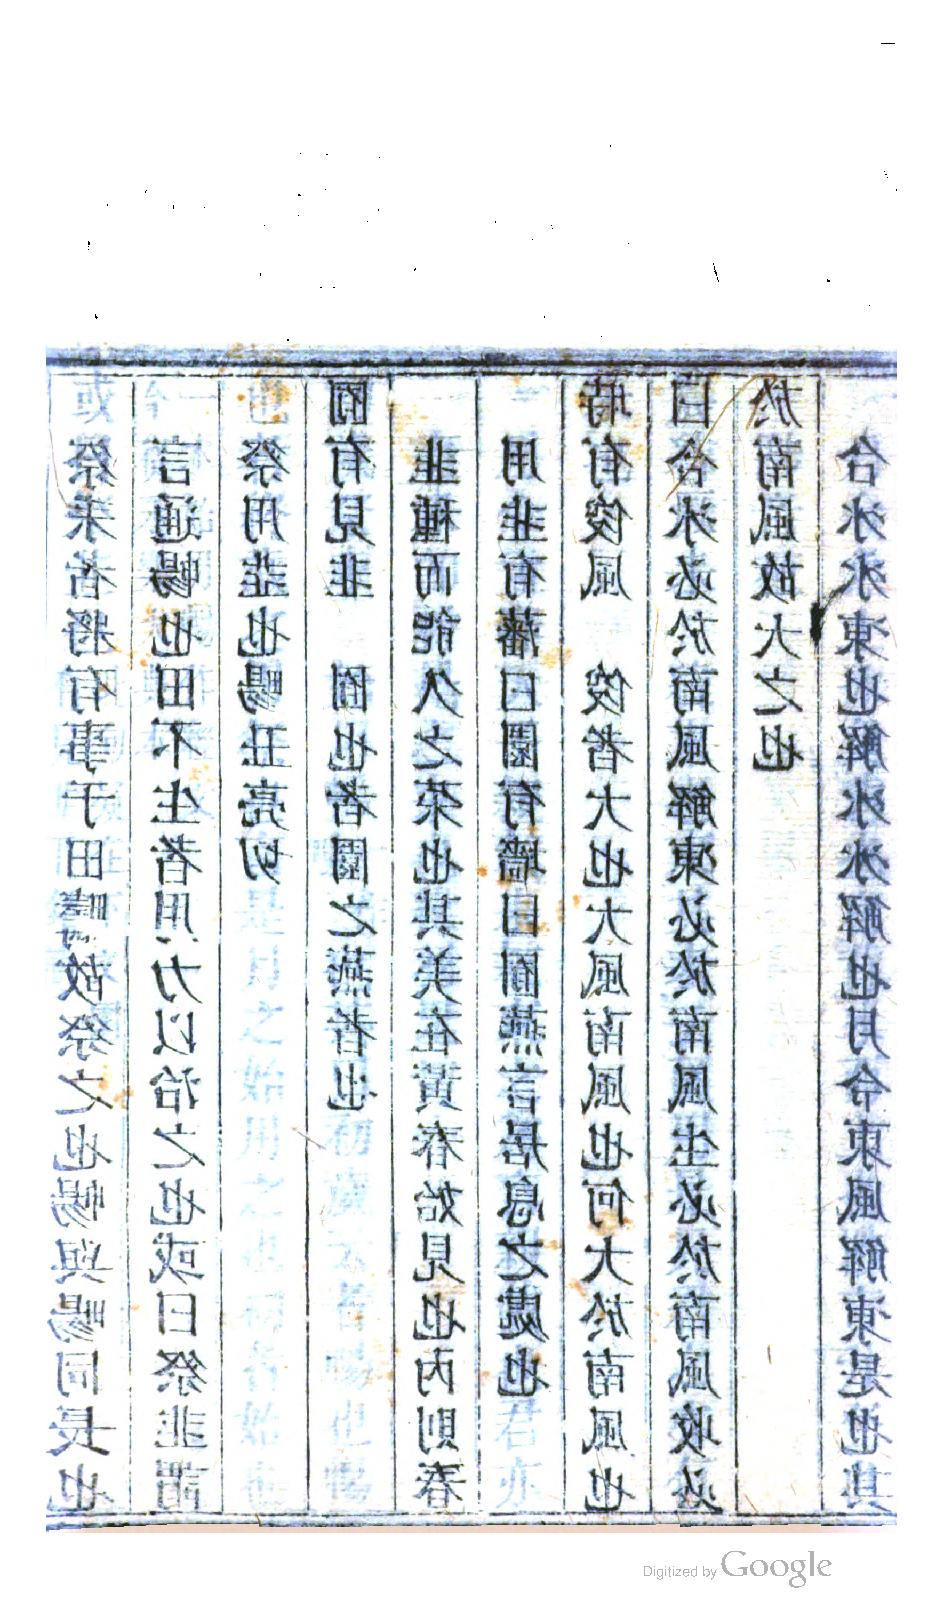 祭耒者將有事于田疇故祭之也暢與畼同長也
言通暢也田不生者用力以治之也或曰祭韭謂
祭用韭也畼丑亮切
囿有見韭　囿也者園之燕者也
韭種而能久之菜也其美在黃春始見也內則春
用韭有藩曰園有墻曰囿燕言居息之處也
時有俊風　俊者大也大風南風也何大於南風也
曰合冰必於南風解凍必於南風生必於南風收必
於南風故大之也
合冰冰凍也解冰冰解也月令東風解凍是也其
Digitized by Google